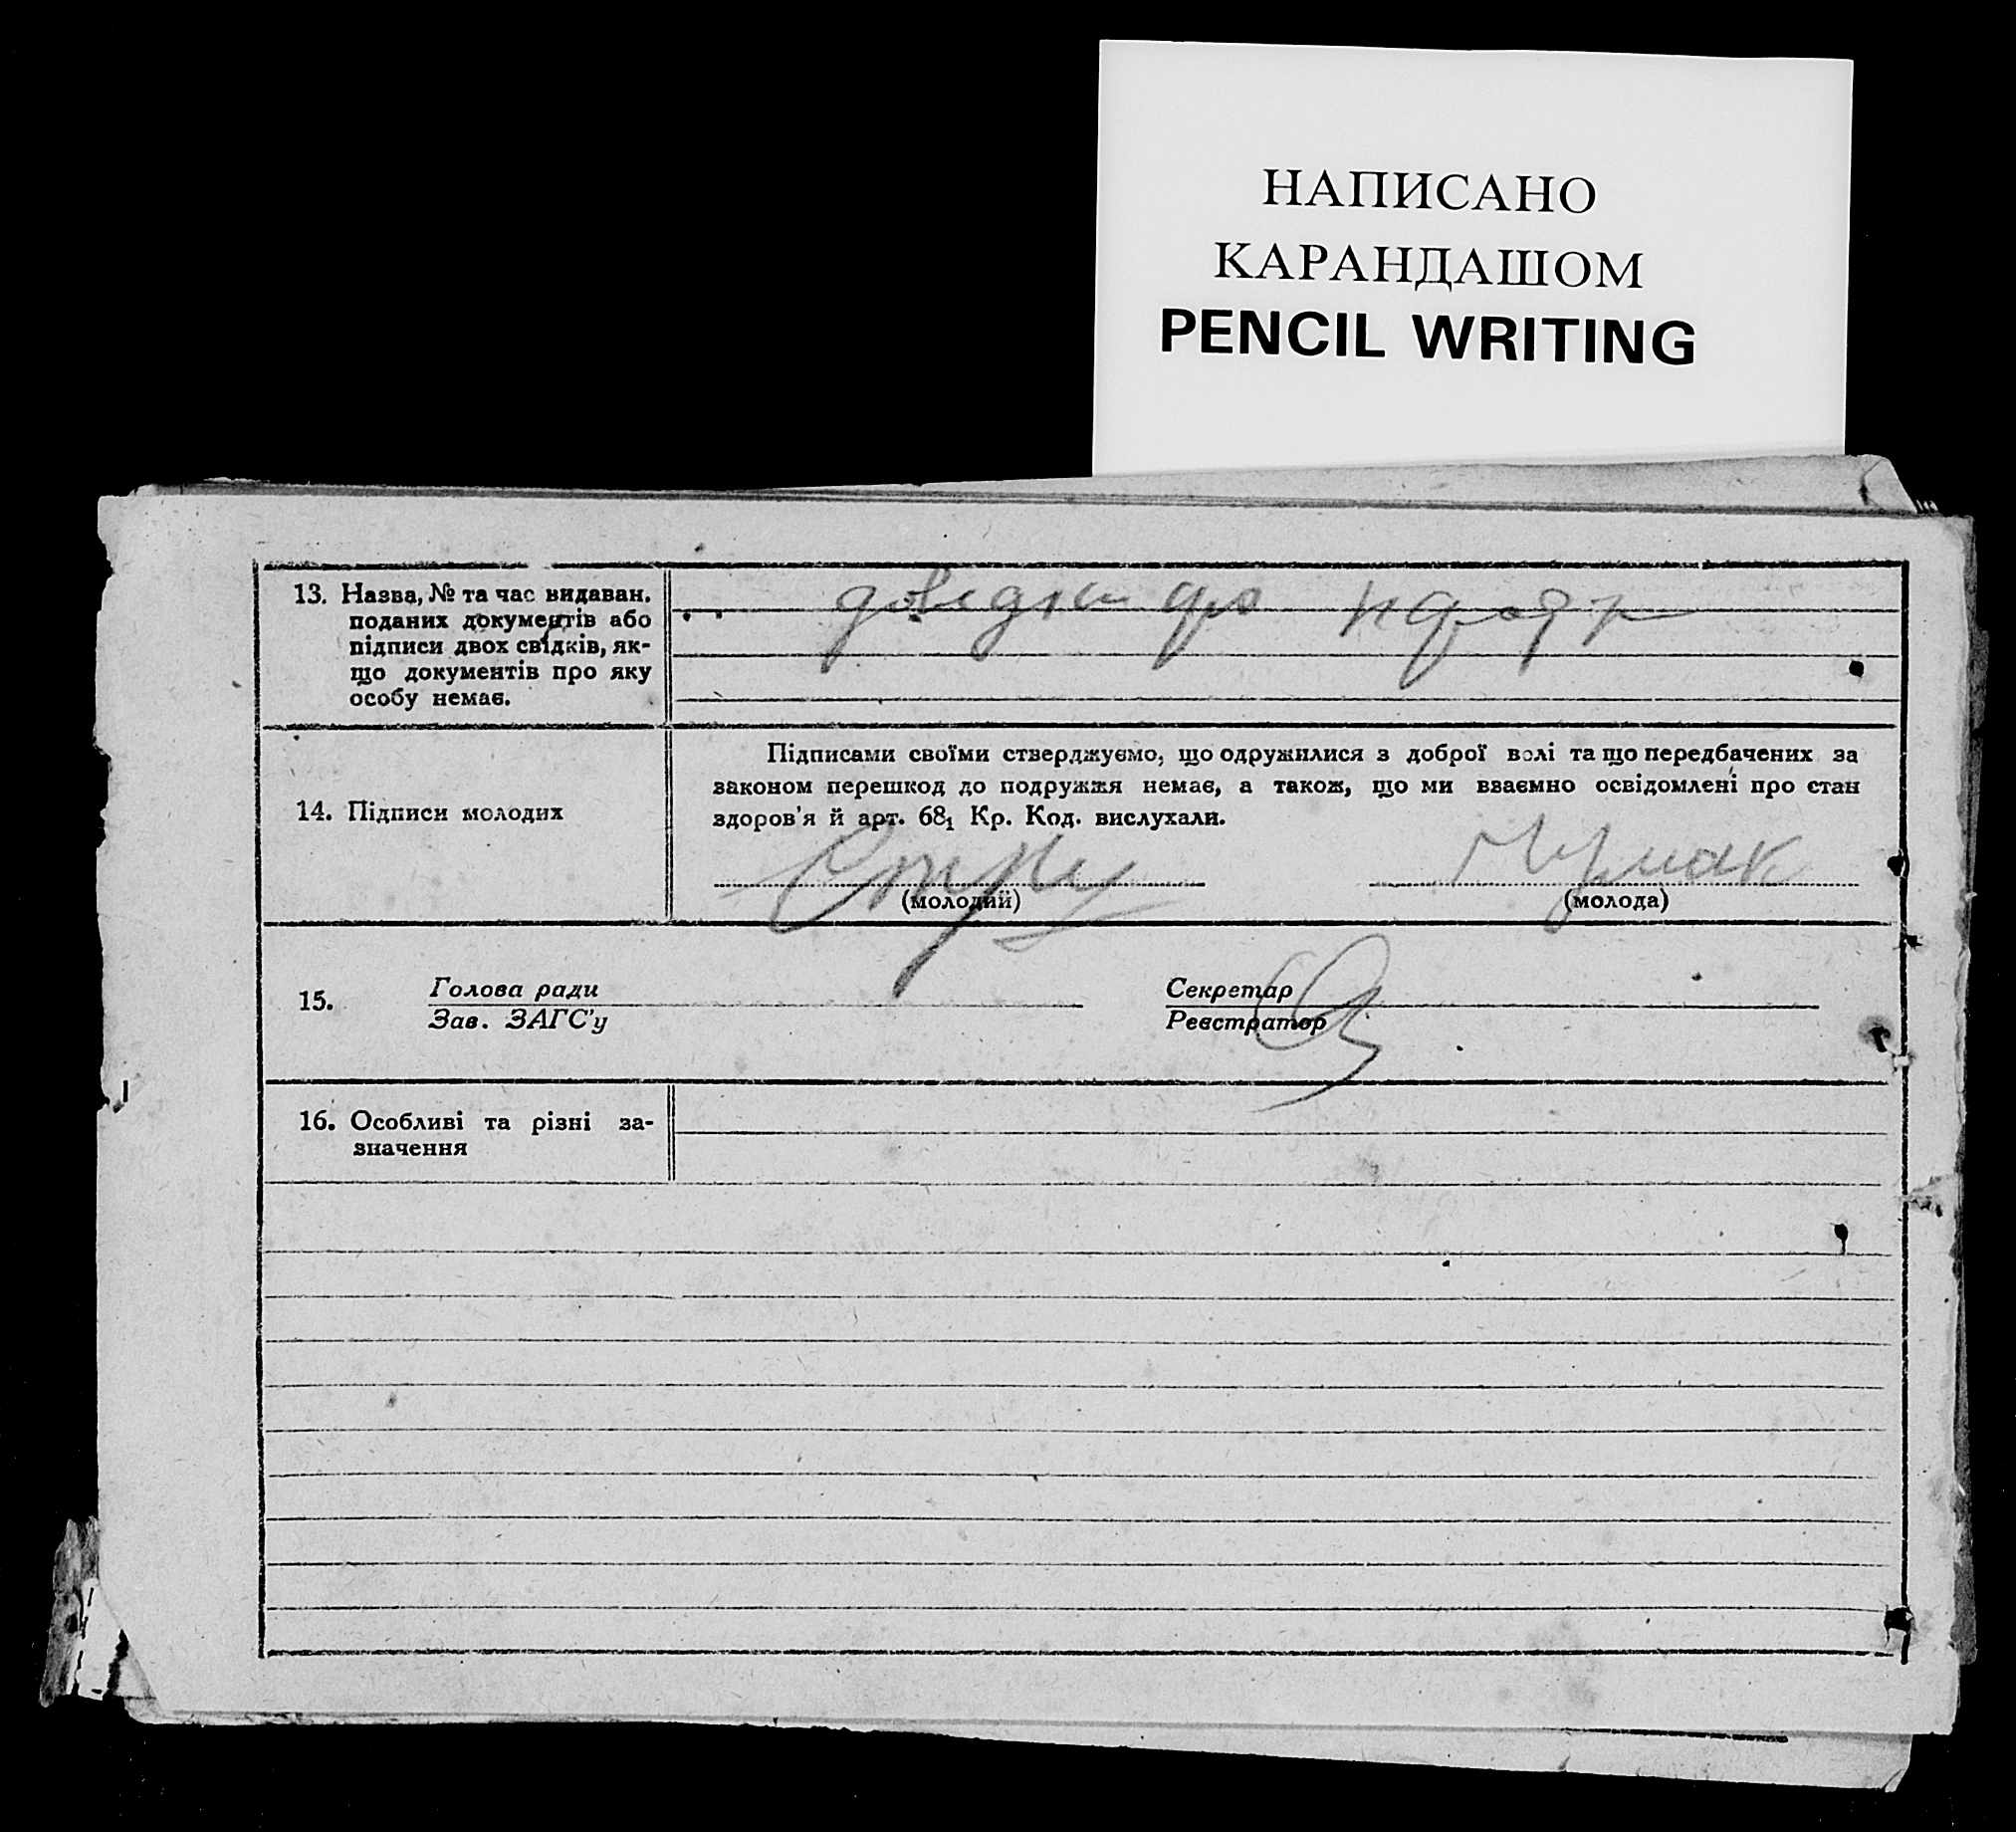 НАПИСАНО
КАРАНДАШОМ
PENCIL WRITING
13. Назва, № та час видаван.
поданих документів або
підписи двох свідків, як-
що документів про яку
особу немає.
довідка про
14. Підписи молодих
Підписами своїми стверджуємо, що одружилися з доброї волі та що передбачених за
законом перешкод до подружжя немає, а також, що ми взаємно освідомлені про стан
здоров'я й арт. 68₁ Кр. Код. вислухали.
(молодий) (молода)
15. Голова ради Секретар
Зав. ЗАГС'у Реєстратор
16. Особливі та різні за-
значення